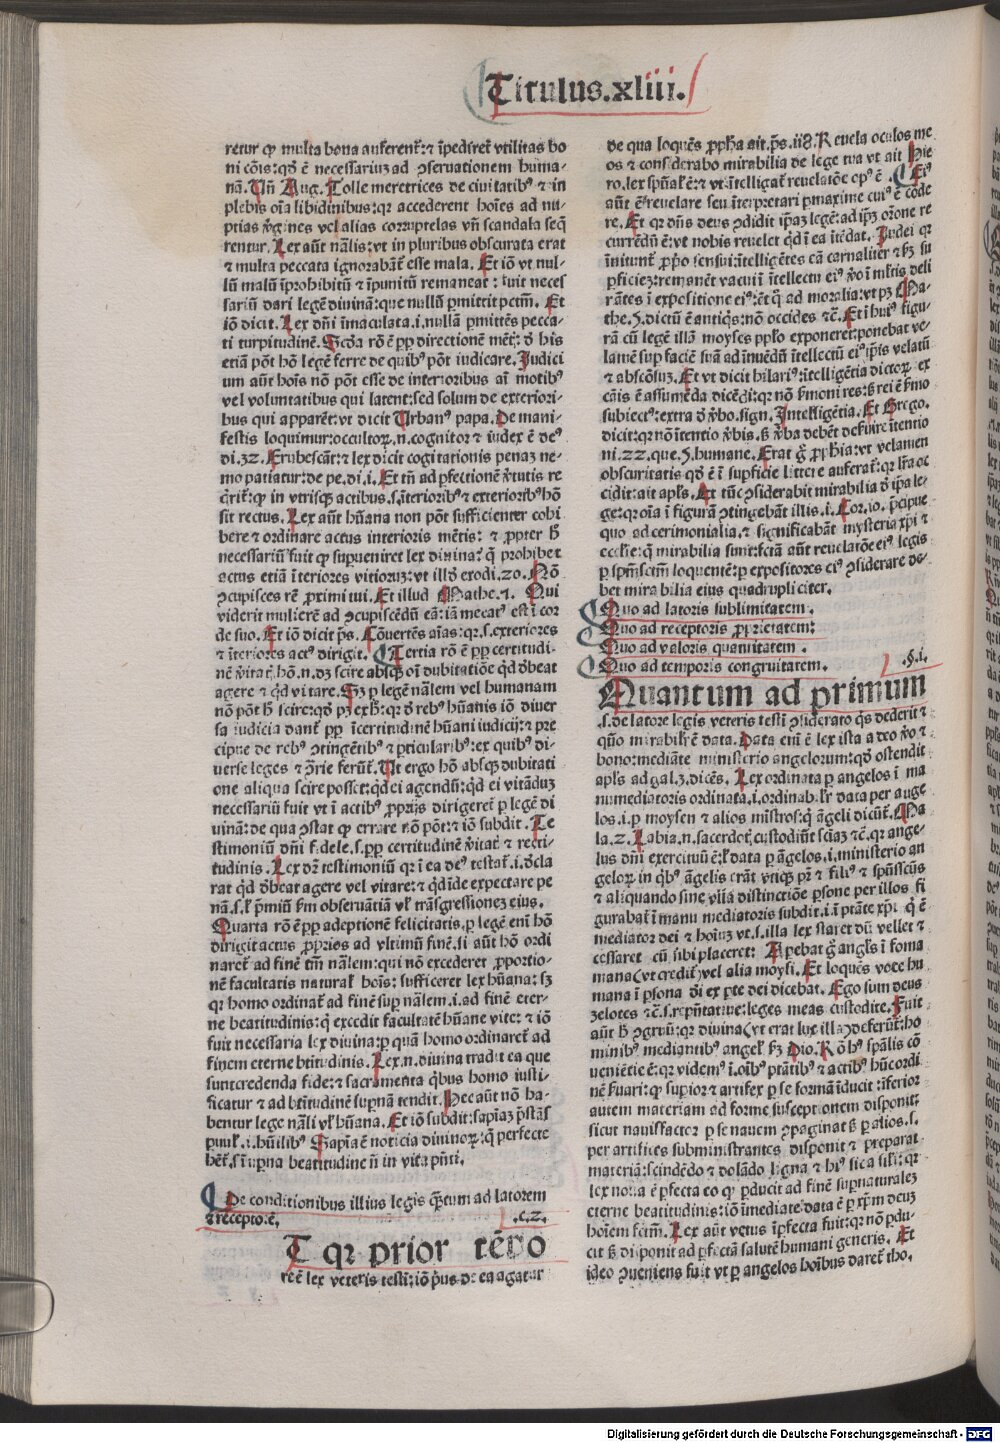 Titulus.xliii.
retur qp multa bona auferent᷑:⁊ īpediret᷑ vtilitas bo
ni cōis:qd̄ ē necessarium ad ꝯseruationem huma-
nā. Uñ Aug. Tolle meretrices de ciuitatibꝰ ⁊ in
plebis oīa libidinibus:qr accederent hoīes ad nu-
ptias v̄gines vel alias corruptelas vñ scandala seq̄
rentur. Lex aūt nālis:vt in pluribus obscurata erat
⁊ multa peccata ignorabāt᷑ esse mala. Et iō vt nul-
lū malū īprohibitū ⁊ īpunitū remaneat : fuit neces
sariū dari legē diuinā:que nullū pmittit pctm̄. Et
iō dicit. Lex dn̄i īmaculata.i.nullā pmittēs pecca-
ti turpitudinē. Scd̄a rō ē pp directionē mēt᷑: d̄ his
etiā pōt hō legē ferre de quibꝰ pōt iudicare. Judici
um aūt hoīs nō pōt esse de interioribus aī motibꝰ
vel voluntatibus qui latent:sed solum de exteriori-
bus qui apparēt:vt dicit Urbanꝰ papa. De mani-
festis loquimur:occultoꝝ.n.cognitor ⁊ iudex ē deꝰ
di.32. Erubescāt:⁊ lex dicit cogitationis penaz ne-
mo patiatur:de pe.di.i. Et tn̄ ad pfectionē v̄tutis re
q̄rit᷑:qp in vtrisqꝫ actibus.s.īterioribꝰ ⁊ exterioribꝰ hō
sit rectus. Lex aūt hūana non pōt sufficienter cohi
bere ⁊ ordinare actus interioris mētis: ⁊ ꝓpter h̄
necessariū fuit qp supueniret lex diuina: q̄ prohibet
actus etiā īteriores vitiorum:vt illd̄ exodi.20. Nō
ꝯcupisces rē ꝓximi tui. Et illud Mathe.7. Qui
viderit mulierē ad ꝯcupiscēdū eā:iā mecatꝰ est ī cor
de suo. Et iō dicit p̄s. Cōuertēs aīas:qr.s.exteriores
⁊ īteriores actꝰ dirigit. Tertia rō ē pp certitudi-
nē v̄itat᷑ hō.n.dꝫ scire absqꝫ oī dubitatiōe qd̄ d̄beat
agere ⁊ qd̄ vitare. Sꝫ p legē nālem vel humanam
nō pōt h̄ scire:qd̄ pꝫ exh̄:qr d̄ rebꝰ hūanis iō diuer
sa iudicia dant᷑ pp īcertitudinē hūani iudicij:⁊ pre
cipue de rebꝰ ꝯtingētibꝰ ⁊ pticularibꝰ:ex quibꝰ di-
uerse leges ⁊ ꝯ̄rie ferūt᷑. Ut ergo hō absqꝫ dubitati
one aliqua scire posset:qd̄ ei agendū:qd̄ ei vitāduꝫ
necessariū fuit vt ī actibꝰ ꝓprijs dirigeret᷑ p legē di
uinā:de qua ꝯstat qp errare nō pōt:⁊ iō subdit. Te
stimoniū dn̄i f.dele.s.pp certitudinē v̄itat᷑ ⁊ recti-
tudinis. Lex dr̄ testimoniū qr ī ea deꝰ testat᷑.i.d̄cla
rat qd̄ d̄beat agere vel vitare:⁊ qd̄ īde expectare pe
nā.s.l̄ p̄miū s̄m obseruātiā vl̓ trāsgressionez eius.
Quarta rō ē pp adeptionē felicitatis.p legē em̄ hō
dirigit actus ꝓprios ad vltimū finē.si aūt hō ordi
naret᷑ ad finē tm̄ nālem:qui nō excederet ꝓportio-
nē facultatis natural᷑ hoīs: sufficeret lex hūana: sꝫ
qr homo ordinat᷑ ad finē sup nālem.i.ad finē eter-
ne beatitudinis:q̄ excedit facultatē hūane vite: ⁊ iō
fuit necessaria lex diuina:p quā homo ordinaret᷑ ad
finem eterne btitudinis. Lex.n.diuina tradit ea que
sunt credenda fide:⁊ sacramenta qbus homo iusti-
ficatur ⁊ ad btitudinē supnā tendit. Hec aūt nō ha-
bentur lege nāli vl̓ hūana. Et iō subdit:sapiaꝫ p̄stās
puul᷑.i.hūilibꝰ Sapia ē noticia diuinoꝝ:q̄ perfecte
het᷑.s.ī supna beatitudine n̄ in vita pn̄ti.
De conditionibus illius legis q̄tum ad latorem
⁊ receptorē. .c.2.
T qr prior tēpo
re ē lex veteris testi:iō p̄us de ea agatur
de qua loquēs ꝓph̄a ait.p̄s.118. Reuela oculos me
os ⁊ considerabo mirabilia de lege tua vt ait Hie
ro.lex spūal᷑ ē:⁊ vt ītelligat᷑ reuelatōe opꝰ ē. Eiꝰ
aūt ē reuelare seu īterpretari p maxime cuiꝰ ē cōde
re. Et qr dn̄s deus ꝯdidit ip̄aꝫ legē:ad ip̄ꝫ or̄one re
currēdū ē:vt nobis reuelet qd̄ ī ea ītēdat. Judei qr
īnitunt᷑ ꝓprio sensui:ītelligētes eā carnaliter ⁊ s̄ꝫ su
pficieꝫ:remanēt vacui ī ītellectu eiꝰ v̄o ī ml̓tis deli
rātes ī expositione eiꝰ:ēt q̄ ad moralia:vt pꝫ Ma-
the.5.dictū ē antiqs:nō occides ⁊c̄. Et ī huiꝰ figu-
rā cū legē illā moyses pplo exponeret:ponebat ve-
lamē sup faciē suā ad īnuēdū ītellectū eiꝰ ip̄is velatū
⁊ abscōsuꝫ. Et vt dicit hilariꝰ:ītelligētia dictoꝝ ex
cāis ē assumēda dicēdi:qr nō s̄moni res:sꝫ rei ē s̄mo
subiectꝰ:extra d̄ v̄bo.sign. Intelligētia. Et Grego.
dicit:qr nō ītentio v̄bis.sꝫ v̄ba debēt deseruire ītentio
ni.22.que.5.humane. Erat g̊ ꝓphia:vt velamen
obscuritatis qd̄ ē ī supficie littere auferat᷑:qr lr̄a oc
cidit:ait apl̄s. Et tūc ꝯsiderabit mirabilia d̄ ip̄a le-
ge:qr oīa ī figurā ꝯtingebāt illis.i.Cor.io.p̄cipue
quo ad cerimonialia.⁊ significabāt mysteria xp̄i ⁊
ecclīe:q̄ mirabilia sunt:fcīā aūt reuelatōe eiꝰ legis
p spm̄sctm̄ loquentē:p expositores eiꝰ ꝯsiderare de-
bet mirabilia eius quadrupliciter.
Quo ad latoris sublimitatem.
Quo ad receptoris ꝓprietatem:
Quo ad valoris quantitatem.
Quo ad temporis congruitatem. .§.i.
Quantum ad primum
.s.de latore legis veteris testi ꝯsiderato q̄s dederit ⁊
quō mirabil᷑r ē data. Data em̄ ē lex ista a deo v̄o ⁊
bono:mediāte ministerio angelorum:qd̄ ostendit
apl̄s ad gal.3.dicēs. Lex ordinata p angelos ī ma
nu mediatoris ordinata.i.ordinabil᷑r data per ange
los.i.p moysen ⁊ alios mistros:q̄ āgeli dicūt᷑. Ma
la.2. Labia.n.sacerdot᷑ custodiūt sciaꝫ ⁊c̄.qr ange-
lus dn̄i exercituū ē:l̓ data p āgelos.i.ministerio an
geloꝝ in qbꝰ āgelis erāt vtiqꝫ pr̄ ⁊ filiꝰ ⁊ spūssctūs
⁊ aliquando sine vllā distinctiōe psone per illos fi
gurabat᷑ ī manu mediatoris subdit.i.ī ptāte xp̄i q̄ ē
mediator dei ⁊ hoīuꝫ vt.s.illa lex staret dū vellet ⁊
cessaret cū sibi placeret: Apebat g̊ angl̓s ī forma
humana(vt credit᷑)vel alia moysi. Et loquēs voce hu
mana ī psona d̄i ex pte dei dicebat. Ego sum deus
zelotes ⁊c̄.s.repn̄tatiue:leges meas custodite. Fuit
aūt h̄ ꝯgruū:qr diuina(vt erat lux illa)deferūt᷑:ho
minibꝰ mediantibꝰ angel᷑ s̄ꝫ Dio. Rō hꝰ spālis cō
ueniētie ē:qr videmꝰ ī oībꝰ ptātibꝰ ⁊ actibꝰ hūc ordi
nē s̄uari:qr supior ⁊ artifex p se formā īducit :īferior
autem materiam ad forme susceptionem disponit:
sicut nauisfactor p se nauem ꝯpaginat sꝫ p alios.s.
per artifices subministrantes disponit ⁊ preparat
materiā:scindēdo ⁊ dolādo ligna ⁊ hiꝰ sica sili:qr
lex noua ē pfecta eo qp pducit ad finē supnaturaleꝫ
eterne beatitudinis:iō īmediate data ē p xp̄m deuꝫ
hoīem fctm̄. Lex aūt vetus īpfecta fuit:qr nō pdu-
cit sꝫ disponit ad pfectā salutē humani generis. Et
ideo ꝯueniens fuit vt p angelos hoībus daret᷑ tho.
Digitalisierung gefördert durch die Deutsche Forschungsgemeinschaft - DFG